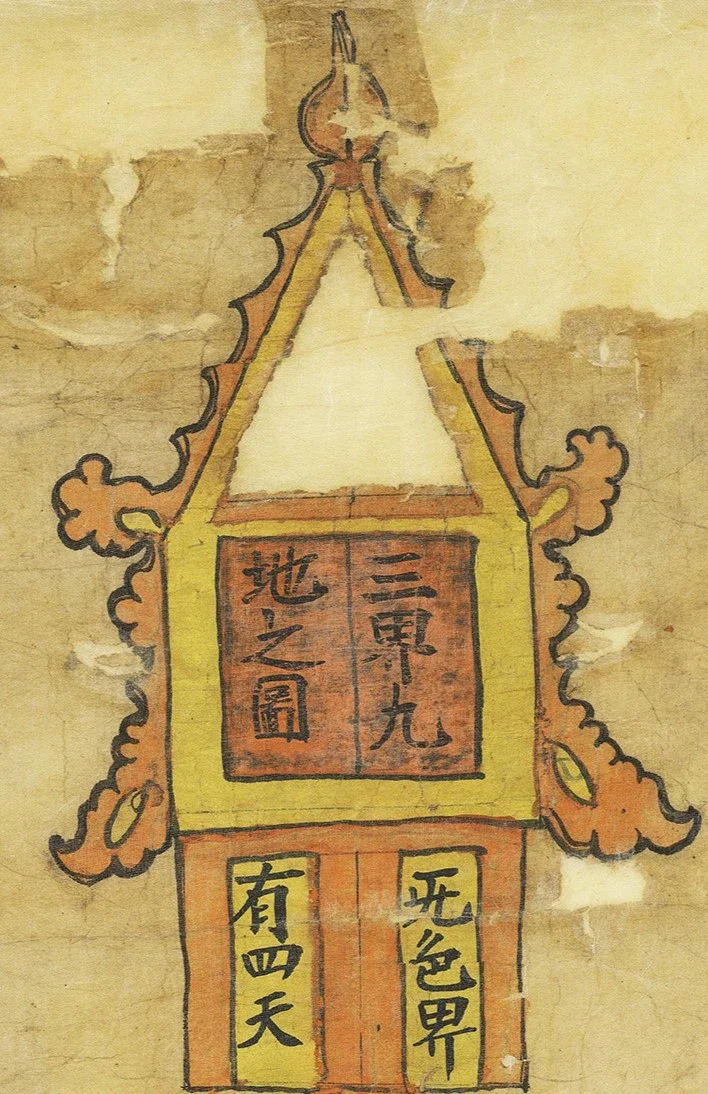 三界九
地之圖
无色界
有四天